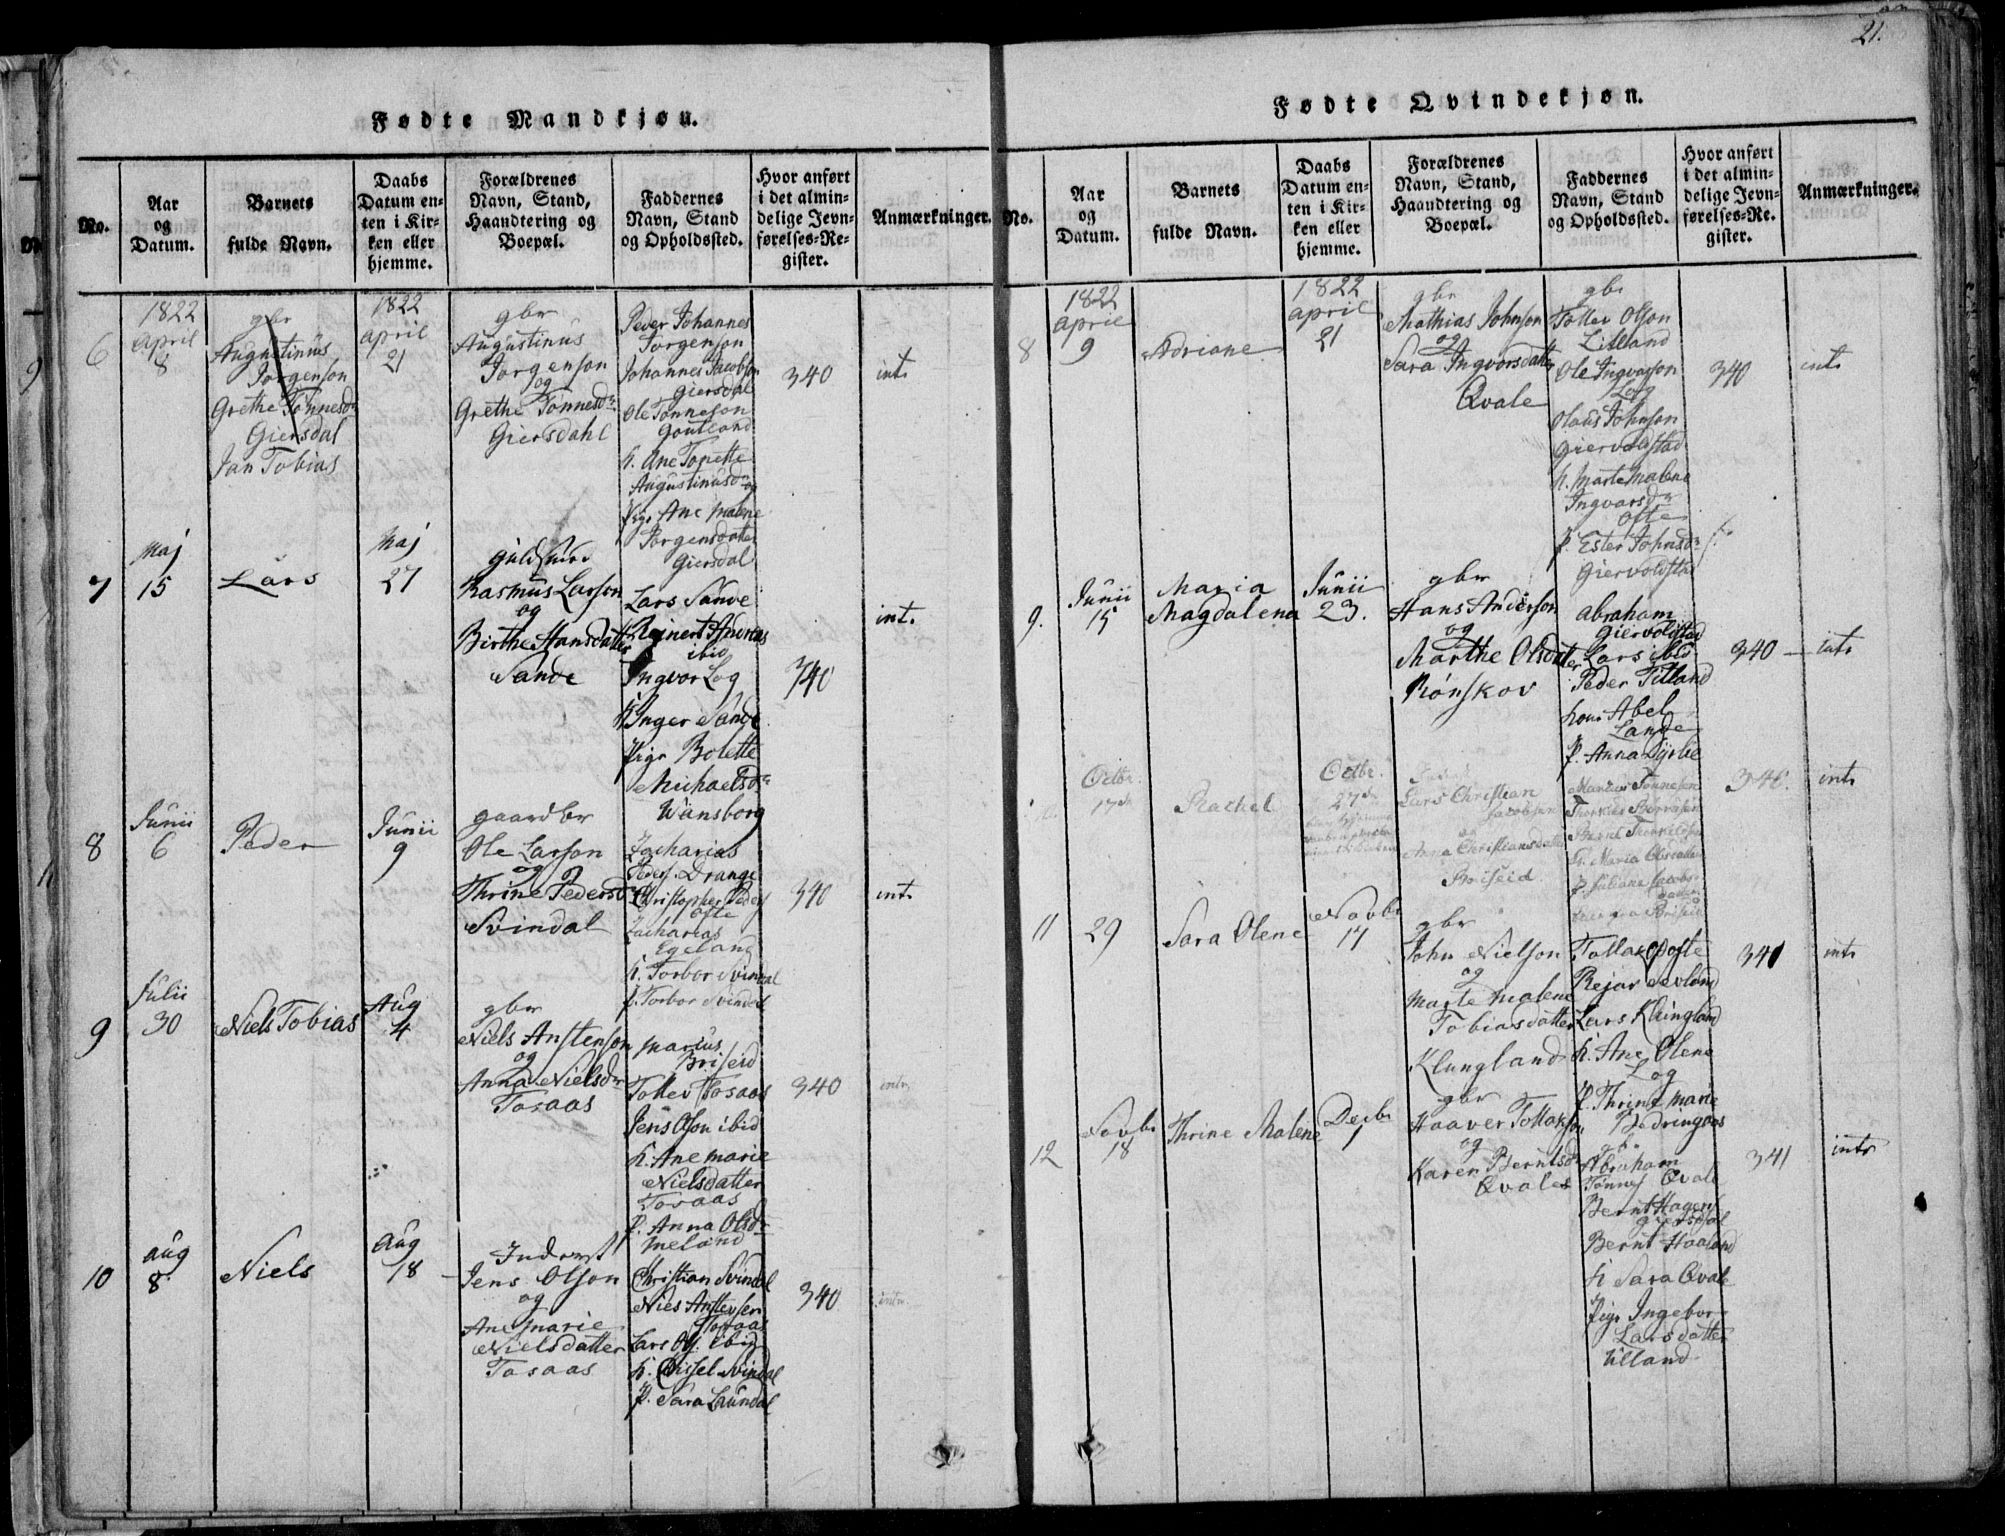 21.
Fødte Mandkjøn.
No.
Aar
og
Datum.
Barnets
fulde Navn.
Daabs
Datum en-
ten i Kir-
ken eller
hjemme.
Forældrenes
Navn, Stand,
Haandtering og
Boepæl.
Faddernes
Navn, Stand
og Opholdssted.
Hvor anført
i det almin-
delige Jevn-
førelses-Re-
gister.
Anmærkninger.
6
1822
April
8
gbr
Augustinus
Jørgenson
Grethe Tønnesdr
Giersdal
Jan Tobias
1822
April
21
gbr
Augustinus
Jørgenson
og
Grethe Tønnesdr
Giersdahl
Peder Johannes
Jørgenson
Johannes Jacobson
Giersdal
Ole Tønneson
k. Ane Tonette
Augustinusdr og
Pige Ane Malene
Jørgensdatter
Giersdal
340
int.
7
Maj
15
Lars
Maj
27
Rasmus Larson
og
Birthe Hansdatter
Sande
Lars Sande
Reinert Andreas
ibid
Ingvor Log
k. Inger Sande
Pige Bolette
Michaelsdr
Wansborg
340
int.
8
Junii
6
Peder
Junii
9
gaardbr
Ole Larson
og
Thrine Pedersdr
Svindal
Zacharias
Peders. Drange
Christopher Peders
Ofte
Zacharias
Egeland
k. Torbor Svindal
p. Torbor Svindal
340
int.
9
Julii
30
Niels Tobias
Aug
4
gbr
Niels Anstenson
og
Anna Nielsdr
Tosaas
Marius
Briseid
Tollev Tosaas
Jens Olson ibid
k. Ane Marie
Nielsdatter
Tosaas
p. Anna Olsdr
Meland
340
intr
10
Aug
8
Niels
Aug
18
Inderst
Jens Olson
og
Ane Marie
Nielsdatter
Tosaas
Christian Svindal
Niels Anstensen
Tosaas
Lars Ols. ibid
k. Sissel Svindal
p. Sara Laundal
340
intr.
Fødte Qvindekjøn.
No.
Aar
og
Datum.
Barnets
fulde Navn.
Daabs
Datum en-
ten i Kir-
ken eller
hjemme.
Forældrenes
Navn, Stand,
Haandtering og
Boepæl.
Faddernes
Navn, Stand
og Opholdssted.
Hvor anført
i det almin-
delige Jevn-
førelses-Re-
gister.
Anmærkninger.
8
1822
April
9
Adriane
1822
April
21
gbr
Mathias Johnson
og
Sara Ingvorsdatter
Qvale
gbr
Tollev Olson
Litland
Ole Ingvorson
Log
Olaus Johnson
Giervoldstad
k. Marte Malene
Ingvorsdr
Ofte
p. Ester Johnsdr
Giervoldstad
340
int.
9.
Junii
15
Maria
Magdalena
Junii
23.
gbr
Hans Anderson
og
Marthe Olsdatter
Rønskov
Abraham
Giervoldstad
Lars ibid
Peder Titland
kone Abel
Lande
p. Anna
340
intr
Octbr.
17de
Rachel
Octbr.
27de
Lars Christian
Jacobsen
og
Anna Christiansdatter
Briseid.
Marcus Tønnesen
k. Maria Olsdatter
p. Juliane Jacobs-
datter
340.
intr
11
29
Sara Olene
Novbr
17
gbr
John Nielson
og
Marte Malene
Tobiasdatter
Klungland
Tollak Ofte
Rejar Sevland
Lars Klungland
k. Ane Olene
Log
p. Thrine Marie
341
intr
12
Novbr
18
Thrine Malene
Decbr
1
gbr
Haaver Tollakson
og
Karen Berntsdr
Qvale
gbr
Abraham
Tønnes Qvale
Bernt Hagens
Giersdal
Bernt Haaland
k Sara Qvale
Pige Ingebor
Larsdatter
Ulland
341
intr